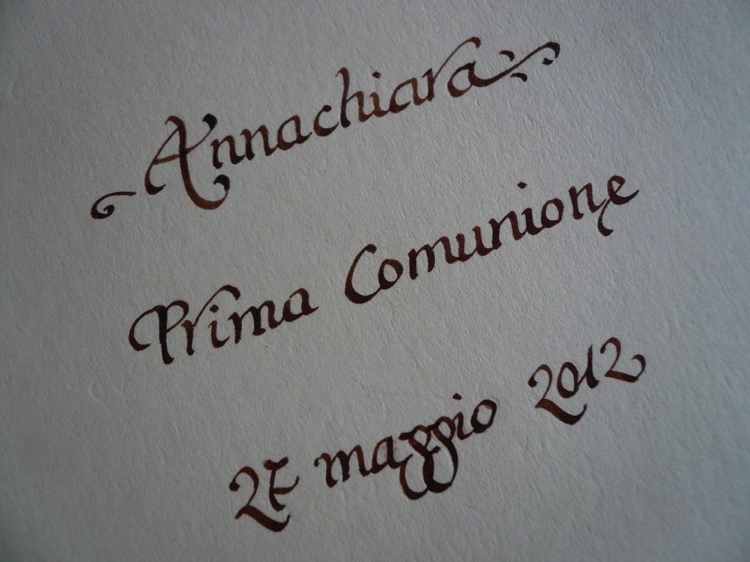 Annachiara
Prima Comunione
27 maggio 2012